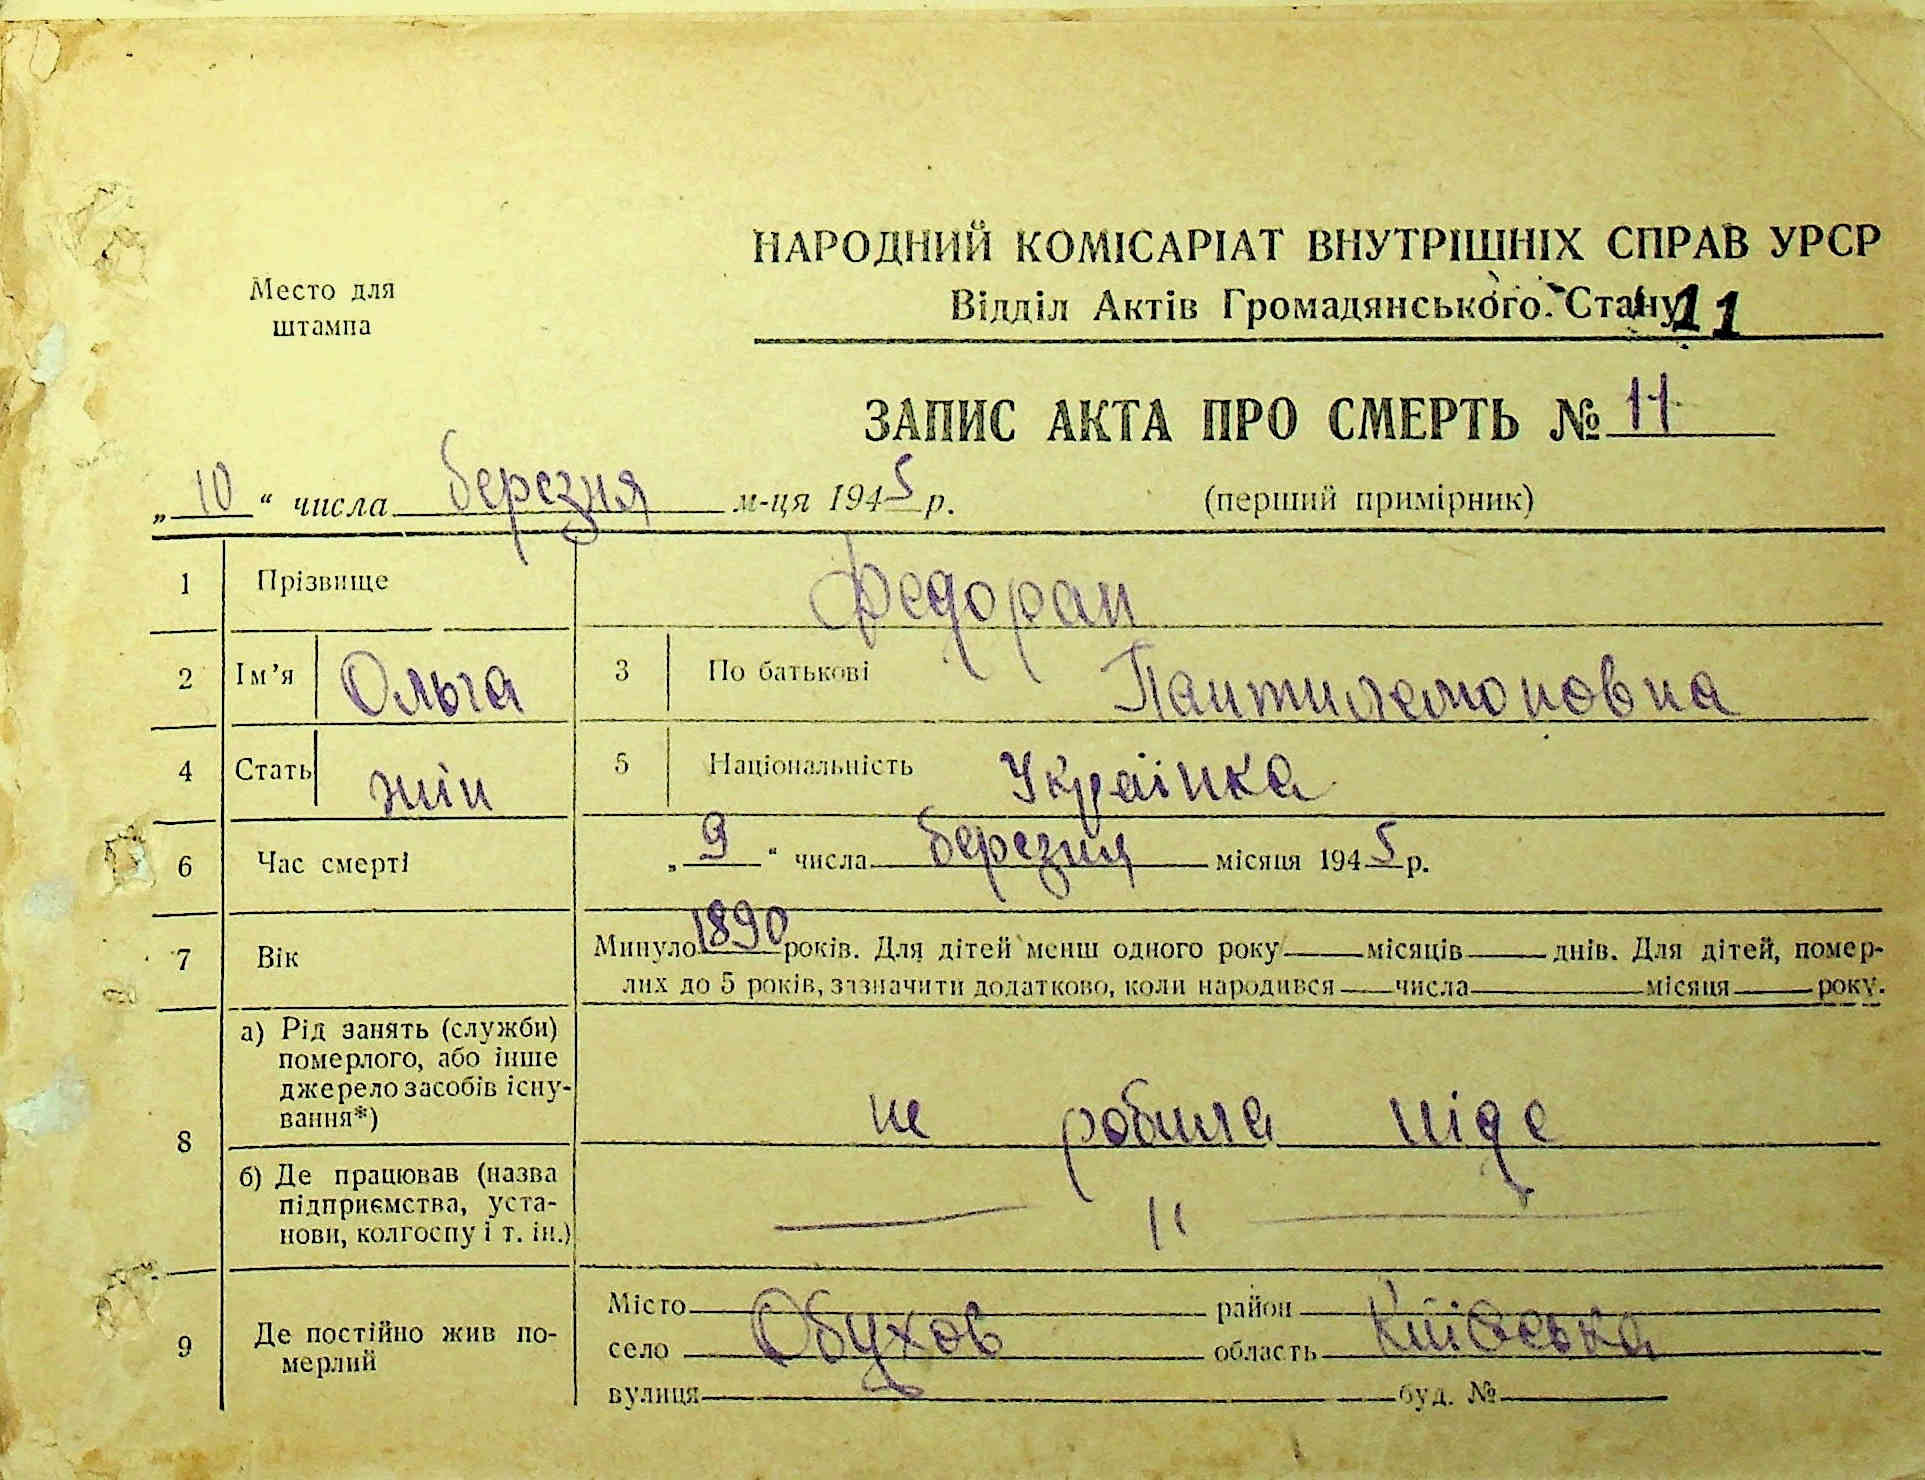 НАРОДНИЙ КОМІСАРІАТ ВНУТРІШНІХ СПРАВ УРСР
Место для
штампа
Відділ Актів Громадянського Стану 11
ЗАПИС АКТА ПРО СМЕРТЬ № 11
„10“ числа березня м-ця 1945 р. (перший примірник)
1 Прізвище Федоран
2 Ім'я Ольга 3 По батькові Пантилемоновна
4 Стать жін 5 Національність Українка
6 Час смерті „9“ числа березня місяця 1945 р.
7 Вік Минуло 1890 років. Для дітей менш одного року — місяців — днів. Для дітей, помер-
лих до 5 років, зазначити додатково, коли народився — числа — місяця — року.
8 а) Рід занять (служби)
померлого, або інше
джерело засобів існу-
вання*) не робила ніде
б) Де працював (назва
підприємства, уста-
нови, колгоспу і т. ін.) — " —
9 Де постійно жив по-
мерлий
Місто район
село Обухов область Київська
вулиця буд. №